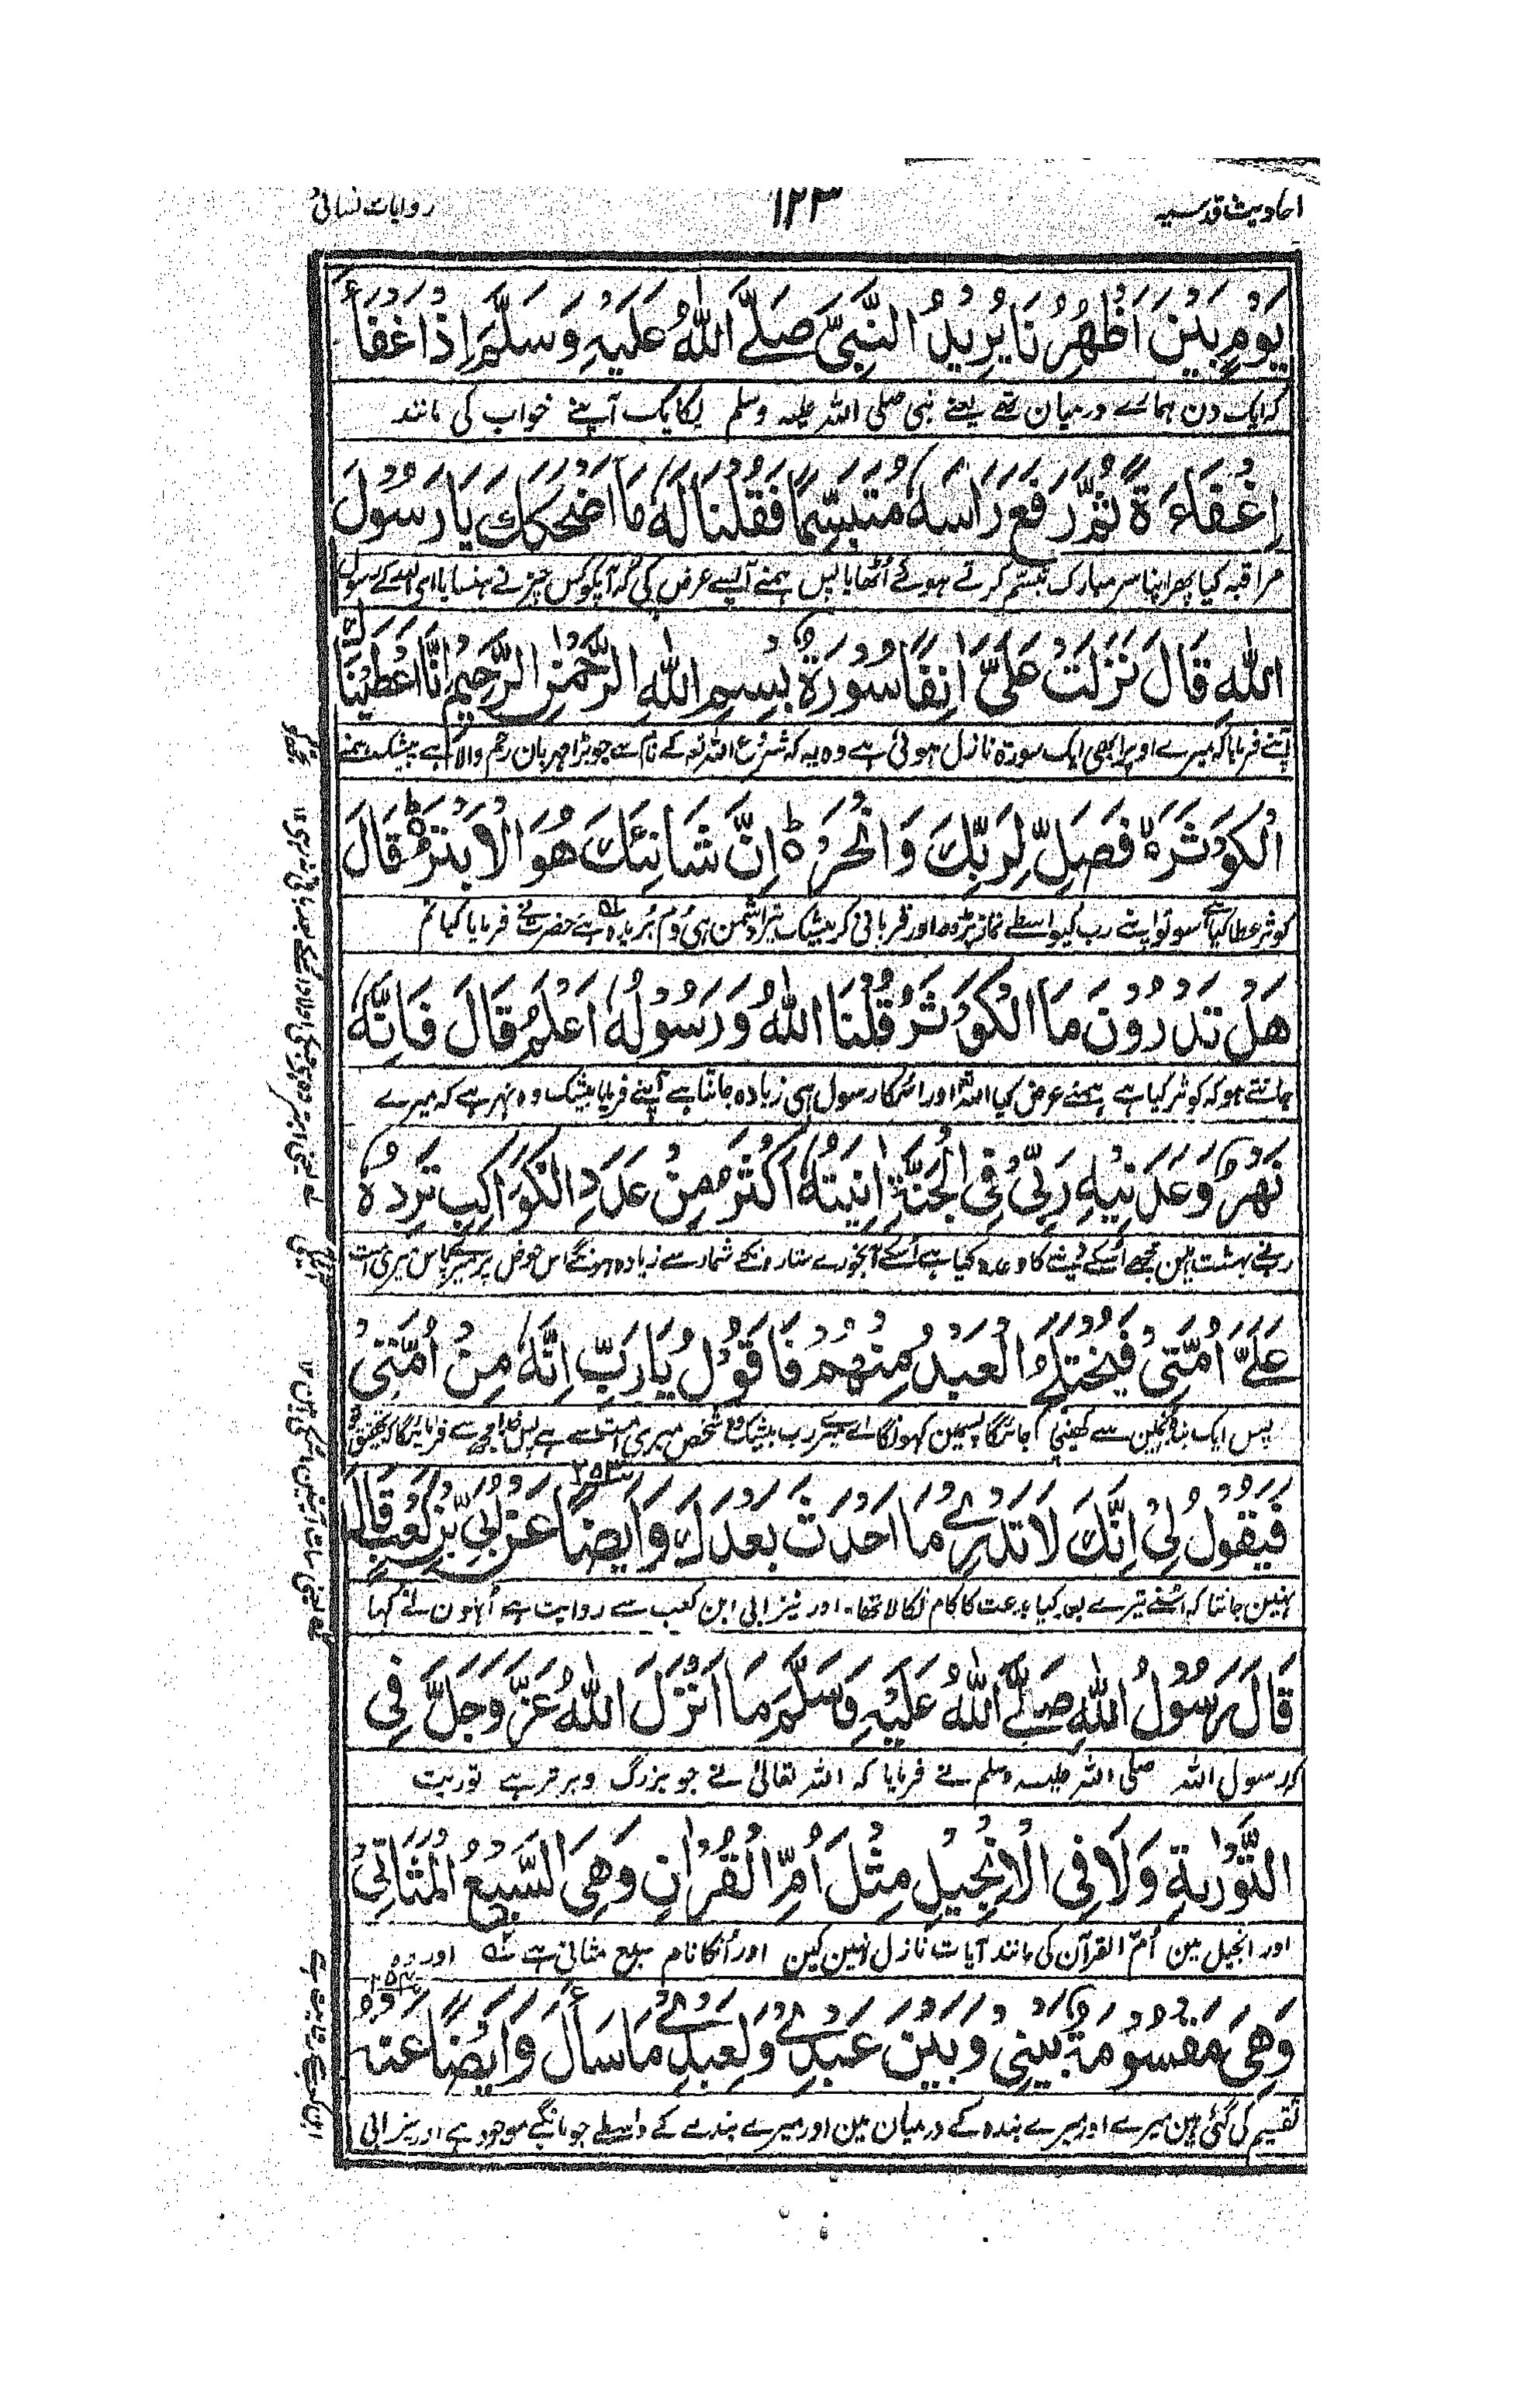 احادیث قدسیہ
۱۲۳
روایات نسائی
يَوْمٍ بَيْنَ اَظْهُرِنَا يُرِيْدُ النَّبِيَّ صَلَّى اللهُ عَلَيْهِ وَسَلَّمَ اِذْ اَغْفٰأَ
کہ ایک دن ہمارے درمیان تھے یعنے نبی صلی اللہ علیہ وسلم یکایک آپنے خواب کی مانند
اِغْفَاءَةً ثُمَّ رَفَعَ رَاْسَهٗ مُتَبَسِّمًا فَقُلْنَا لَهٗ مَا اَضْحَكَكَ يَا رَسُوْلَ
مراقبہ کیا پھر اپنا سر مبارک تبسم کرتے ہوئے اُٹھایا پس ہمنے آپسے عرض کی کہ آپکو کس چیز نے ہنسایا اے اللہ کے رسول
اللهِ قَالَ نَزَلَتْ عَلَيَّ اٰنِفًا سُوْرَةٌ بِسْمِ اللهِ الرَّحْمٰنِ الرَّحِيْمِ اِنَّا اَعْطَيْنٰكَ
آپنے فرمایا کہ میرے اوپر ابھی ایک سورۃ نازل ہوئی ہے وہ یہ کہ شروع اللہ تعہ کے نام سے جو بڑا مہربان رحم والا ہے بیشک ہمنے
الْكَوْثَرَ ہ فَصَلِّ لِرَبِّكَ وَانْحَرْ ہ اِنَّ شَانِئَكَ هُوَ الْاَبْتَرُ ہ قَالَ
کوثر عطا کیا ہے سو تو اپنے رب کیواسطے نماز پڑہ اور قربانی کر بیشک تیرا دشمن ہی دُم بُریدہ ہے حضرت نے فرمایا کیا تم
هَلْ تَدْرُوْنَ مَا الْكَوْثَرُ قُلْنَا اللهُ وَرَسُوْلُهٗ اَعْلَمُ قَالَ فَاِنَّهٗ
جانتے ہو کہ کوثر کیا ہے ہمنے عرض کیا اللہ اور اسکا رسول ہی زیادہ جانتا ہے آپنے فرمایا بیشک وہ نہر ہے کہ میرے
نَهْرٌ وَعَدَنِيْهِ رَبِّيْ فِي الْجَنَّةِ اٰنِيَتُهٗ اَكْثَرُ مِنْ عَدَدِ الْكَوَاكِبِ تَرِدُهُ
ربنے بہشت مین مجھے اُسکے دینے کا وعدہ کیا ہے اُسکے آبخورے ستارونکے شمار سے زیادہ ہونگے اس حوض پر میرے پاس میری امت
عَلَيَّ اُمَّتِيْ فَيُخْتَلَجُ الْعَبْدُ مِنْهُمْ فَاَقُوْلُ يَا رَبِّ اِنَّهٗ مِنْ اُمَّتِيْ
پس ایک بندہ انمین سے کھینچا جائیگا پسمین کہونگا اے میرے رب بیشک وہ شخص میری امت سے ہے پس خدا مجھ سے فرمائیگا کہ تحقیق تو
فَيَقُوْلُ لِيْ اِنَّكَ لَا تَدْرِيْ مَا اَحْدَثَ بَعْدَكَ ۲۵۳ وَاَيْضًا عَنْ اُبَيِّ بْنِ كَعْبٍ قَالَ
نہین جانتا کہ اسنے تیرے بعد کیا بدعت کا کام نکالا تھا۔ اور نیز ابی ابن کعب سے روایت ہے اُنہون نے کہا
قَالَ رَسُوْلُ اللهِ صَلَّى اللهُ عَلَيْهِ وَسَلَّمَ مَا اَنْزَلَ اللهُ عَزَّ وَجَلَّ فِي
کہ رسول اللہ صلی اللہ علیہ وسلم نے فرمایا کہ اللہ تعالیٰ نے جو بزرگ و برتر ہے توریت
التَّوْرٰىةِ وَلَا فِي الْاِنْجِيْلِ مِثْلَ اُمِّ الْقُرْاٰنِ وَهِيَ السَّبْعُ الْمَثَانِيْ
اور انجیل مین اُم القرآن کی مانند آیات نازل نہین کین اور اُنکا نام سبع مثانی ہے اور وہ
وَهِيَ مَقْسُوْمَةٌ بَيْنِيْ وَبَيْنَ عَبْدِيْ وَلِعَبْدِيْ مَا سَأَلَ ۲۵۴ وَاَيْضًا عَنْهُ
تقسیم کی گئی ہین میرے اور میرے بندہ کے درمیان مین اور میرے بندے کے واسطے جو مانگے موجود ہے اور نیز ابی